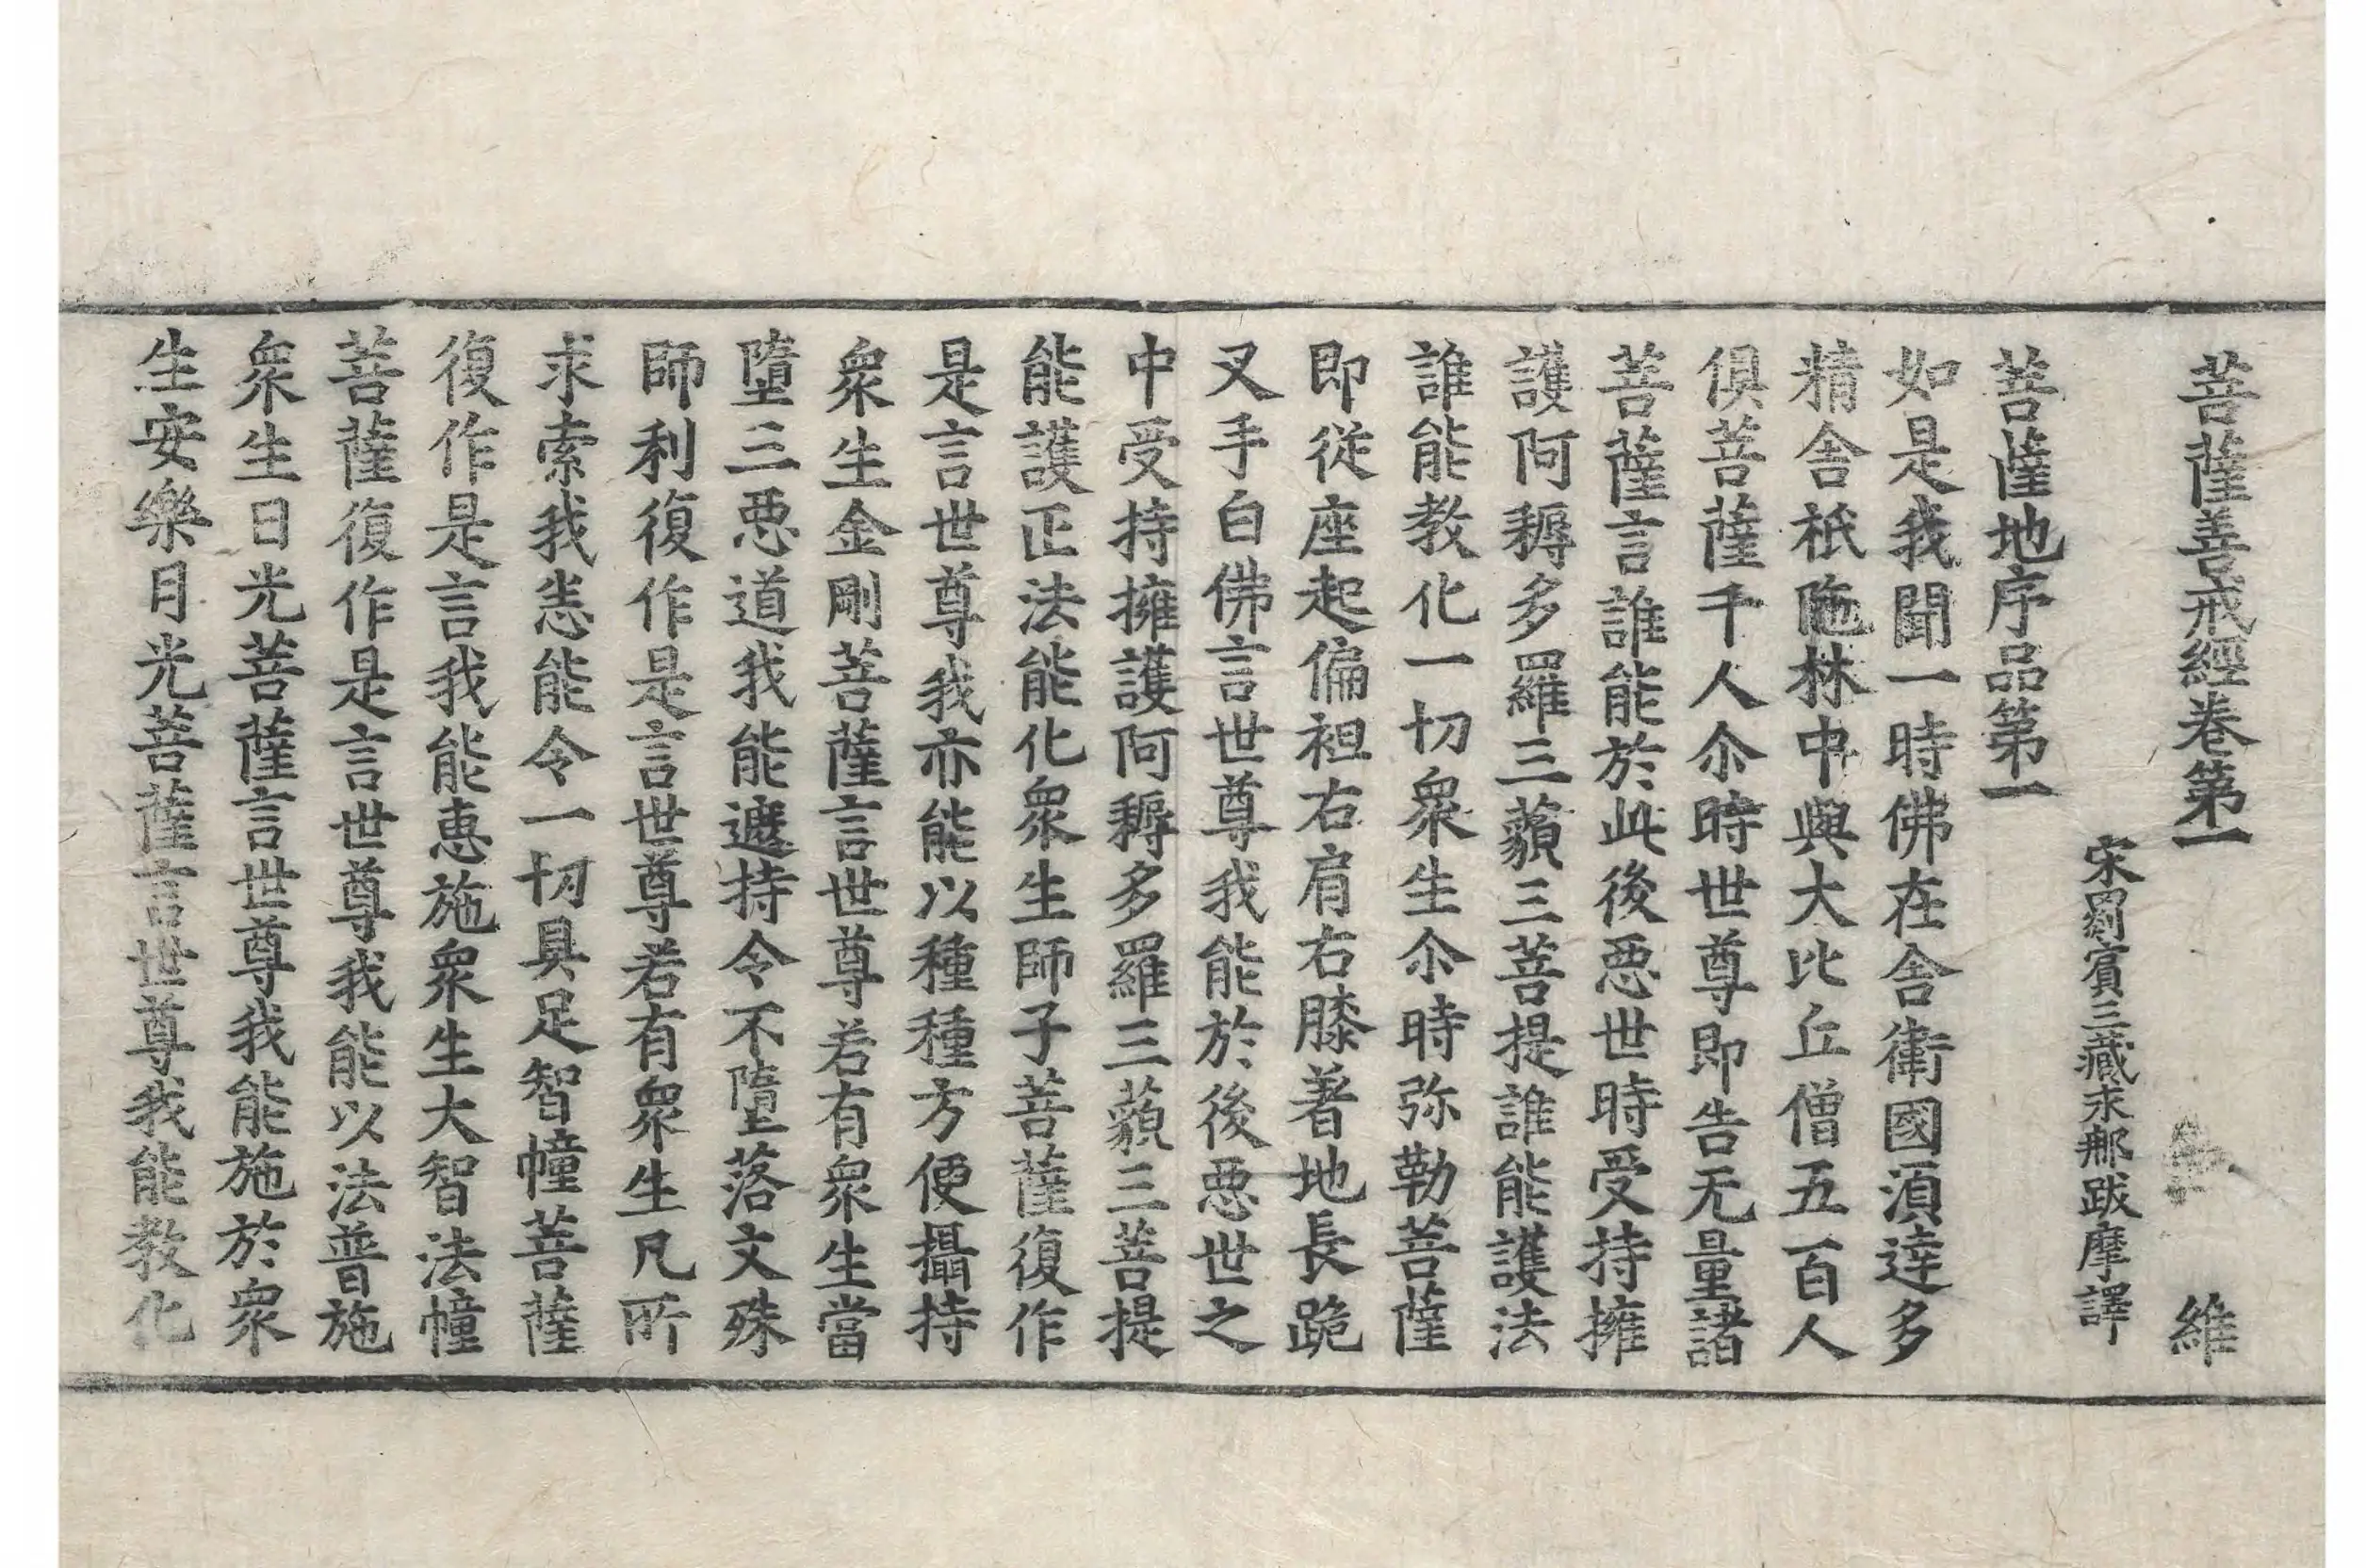 菩薩善戒經卷第一 維
宋罽賓三藏求那跋摩譯
菩薩地序品第一
如是我聞一時佛在舍衛國湏達多
精舍祇陁林中與大比丘僧五百人
俱菩薩千人尒時世尊即告无量諸
菩薩言誰能於此後惡世時受持擁
護阿耨多羅三藐三菩提誰能護法
誰能教化一切衆生尒時弥勒菩薩
即從座起偏袒右肩右膝著地長跪
叉手白佛言世尊我能於後惡世之
中受持擁護阿耨多羅三藐三菩提
能護正法能化衆生師子菩薩復作
是言世尊我亦能以種種方便攝持
衆生金剛菩薩言世尊若有衆生當
墮三惡道我能遮持令不墮落文殊
師利復作是言世尊若有衆生凡所
求索我悉能令一切具足智幢菩薩
復作是言我能惠施衆生大智法幢
菩薩復作是言世尊我能以法普施
衆生日光菩薩言世尊我能施於衆
生安樂月光菩薩言世尊我能教化